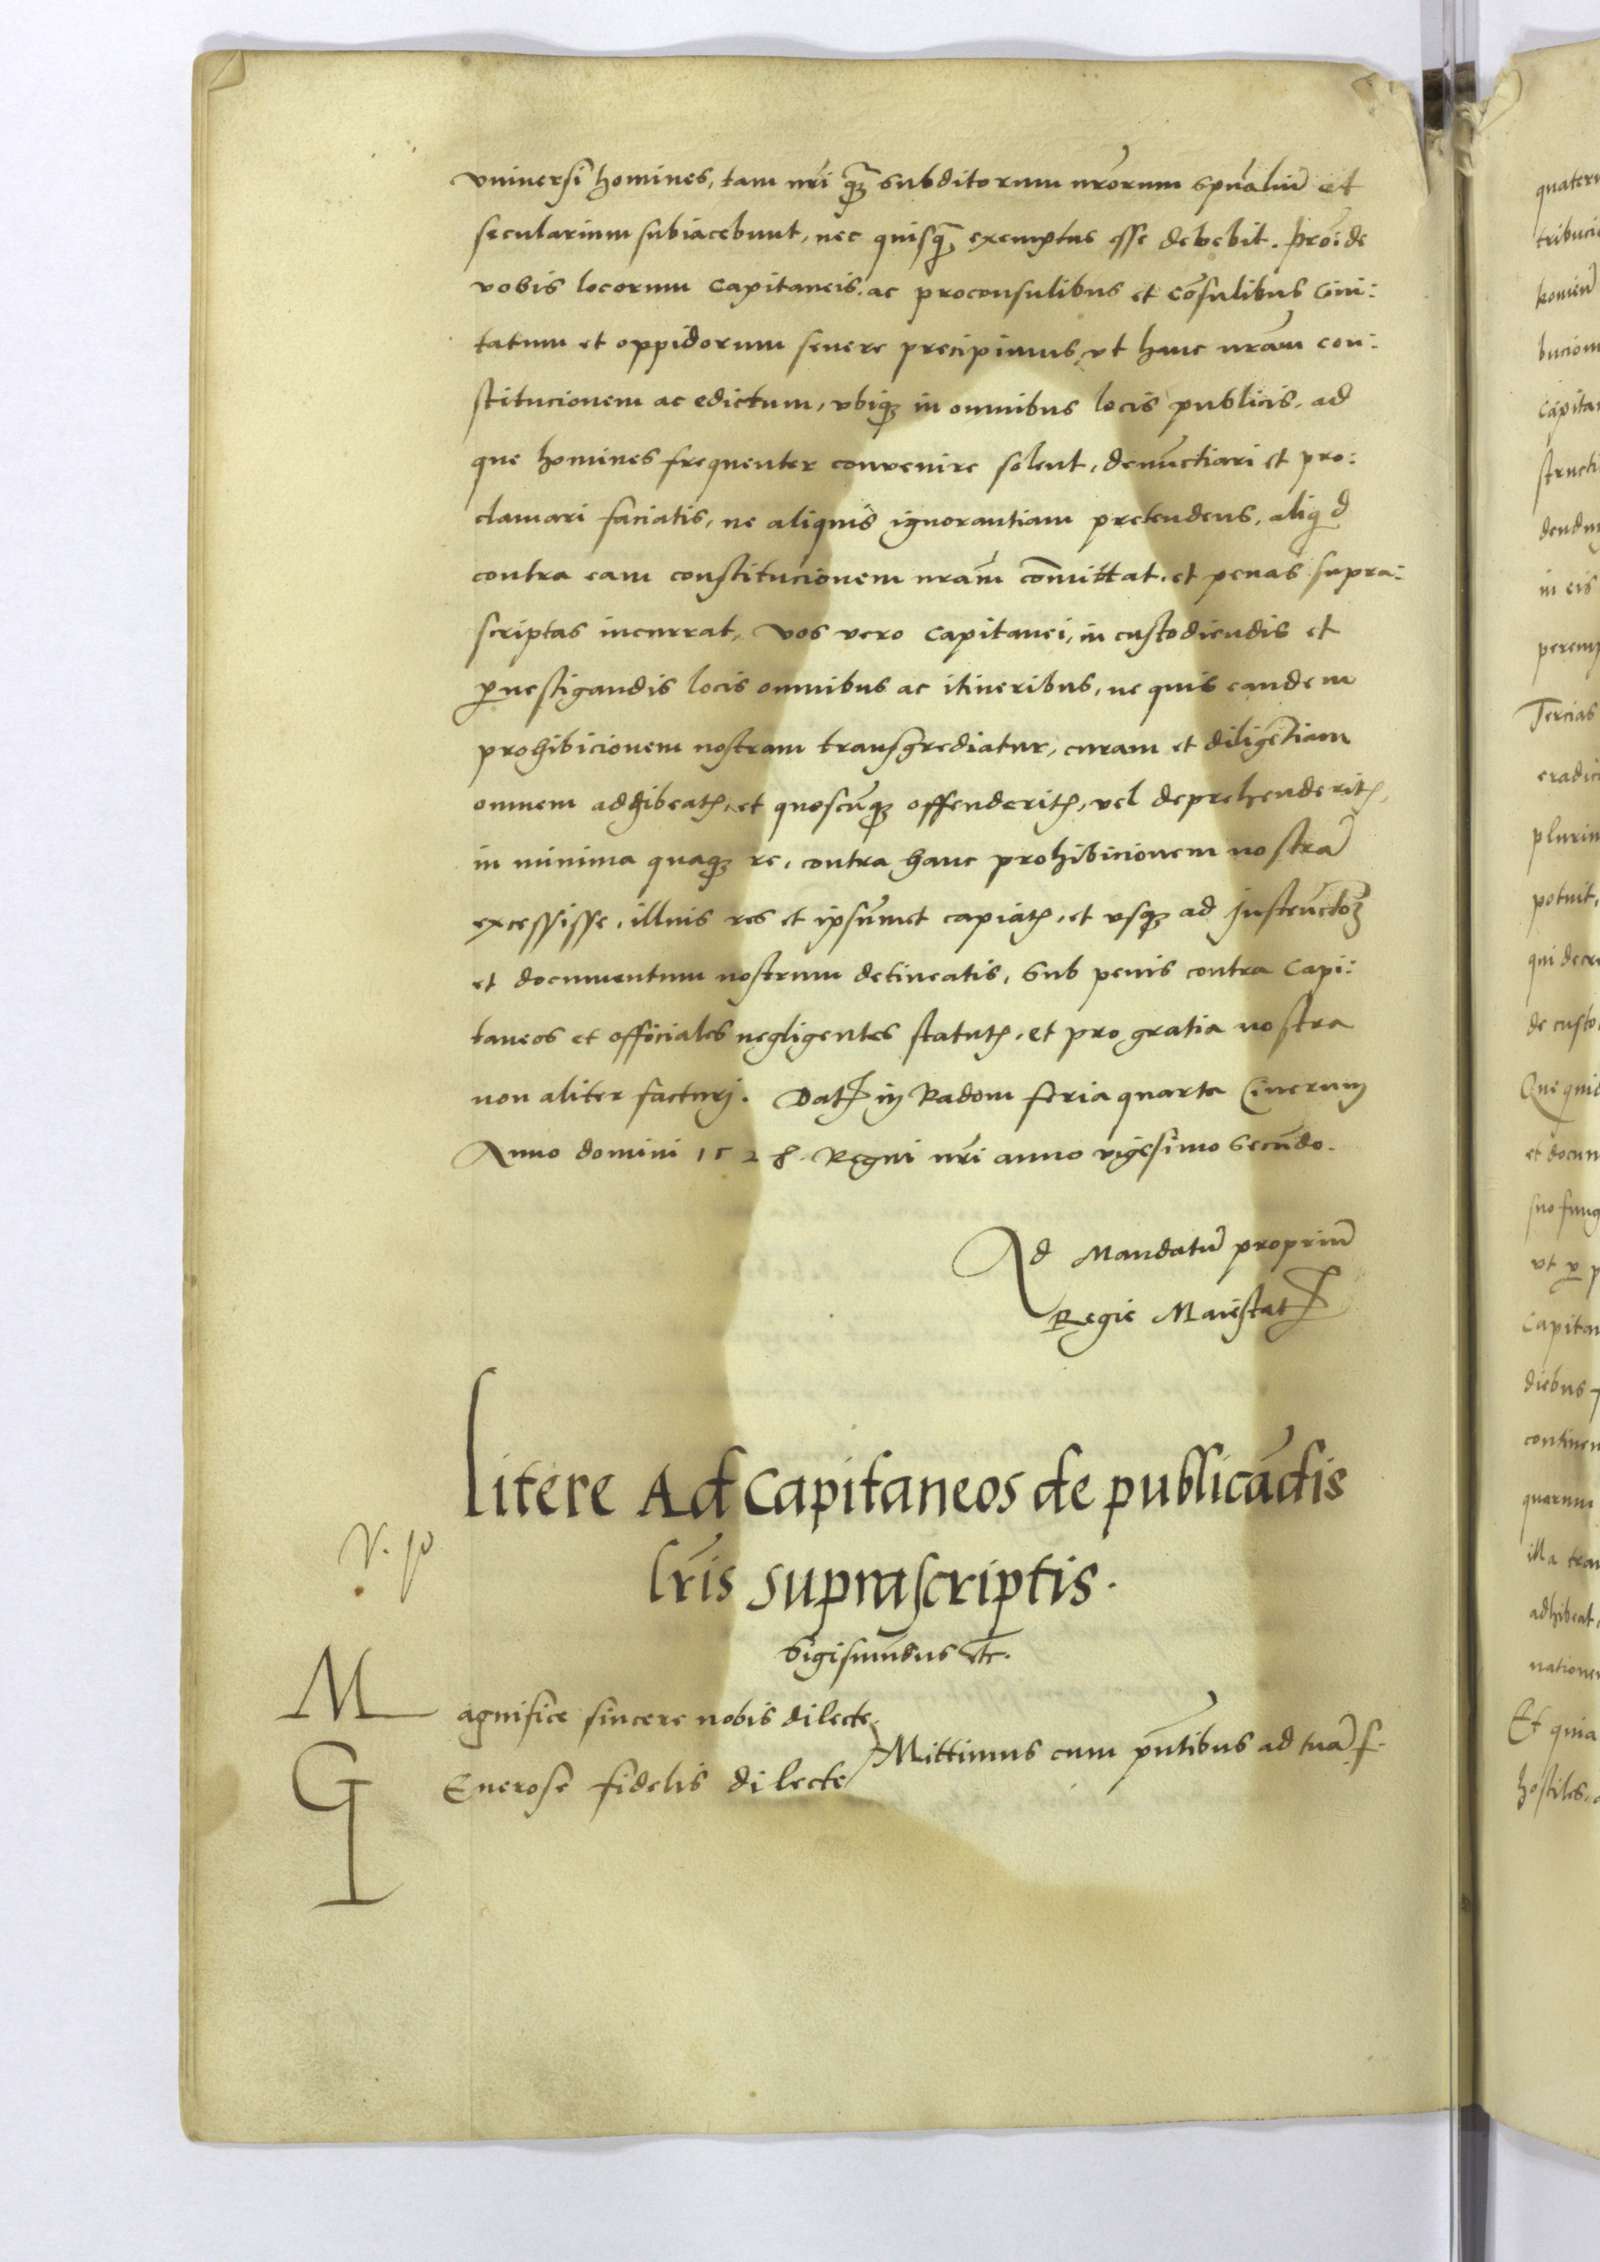 vniversi homines, tam nr̃i q̃ꝫ subditorum nr̃orum spũaliũ et
secularium subiacebunt, nec quisq̃ꝫ exemptus esse debebit. Proĩde
vobis locorum Capitaneis. ac proconsulibus et Cõsulibus Civi:
tatum et oppidorum severe precipimus, vt hanc nr̃am con:
stitucionem ac edictum, vbiqꝫ in omnibus locis publicis, ad
que homines frequenter convenire solent, denũctiari et pro:
clamari faciatis, ne aliquis ignorantiam pretendens, aliqd
contra eam constitucionem nr̃am cõmittat. et penas supra:
scriptas incurrat, Vos vero Capitanei, in custodiendis et
ꝑvestigandis locis omnibus ac itineribus, ne quis eandem
prohibicionem nostram transgrediatur, curam et diligẽtiam
omnem adhibeatꝭ, et quoscũqꝫ offenderitꝭ, vel deprehenderitꝭ,
in minima quaqꝫ re, contra hanc prohibicionem nostrã
excessisse, illius res et ipsũmet capiatꝭ, et vsqꝫ ad
et documentum nostrum detineatis, Sub penis contra Capi:
taneos et officiales negligentes statutꝭ, et pro gratia nostra
non aliter facturj. Datꝭ in Radom feria quarta Cinerum
Anno domini 1528. Regni nr̃i anno vigesimo Secũdo.
Ad Mandatũ propriũ
Regie Maiestatꝭ
Litere Ad Capitaneos de publicãdis
lr̃is suprascriptis.
Sigismũdus etc.
Magnifice sincere nobis dilecte.
Generose fidelis dilecte
Mittimus cum pñtibus ad tuã f.
quatern
tribuci
bucion
Capitan
structi
in eis
Tercias
eradici
plurim
potuit,
qui decre
de custo
Que quid
et docum
suo fung
vt ꝑ p
Capitan
diebus
continen
quarum
illa tran
adhibeat
nationem
Et quia
hostiles,